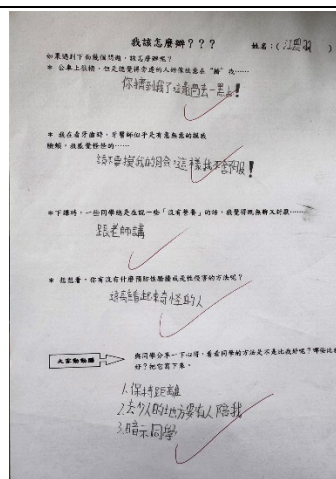 我該怎麼辦???
姓名:( 江 )
如果遇到下面幾個問題,該怎麼辦呢?
* 公車上很擠,但是總覺得旁邊的人好像故意在“擠”我……
你擠到我了,過去一點!
* 我在看牙齒時,牙醫師似乎是有意無意的摸我
臉頰,我感覺怪怪的……
請不要摸我的臉,這樣我不舒服!
*下課時,一些同學總是在說一些「沒有營養」的話,我覺得既無聊又討厭……
跟老師講
* 想想看,你有沒有什麼預防性騷擾或是性侵害的方法呢?
看起來奇怪的人
大家動動腦
與同學分享一下心得,看看同學的方法是不是比我好呢?哪些比較
好?把它寫下來。
1.保持距離
2.去少人的地方要有人陪我
3.暗示同學